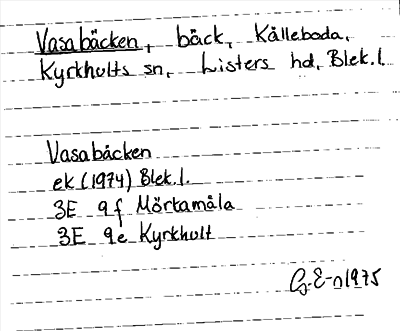 Vasabäcken, bäck, Kålleboda,
Kyrkhults sn, Listers hd, Blek.l.
Vasabäcken
ek (1974) Blek.l.
3E 9f Mörtamåla
3E 9e Kyrkhult
G.E-n 1975